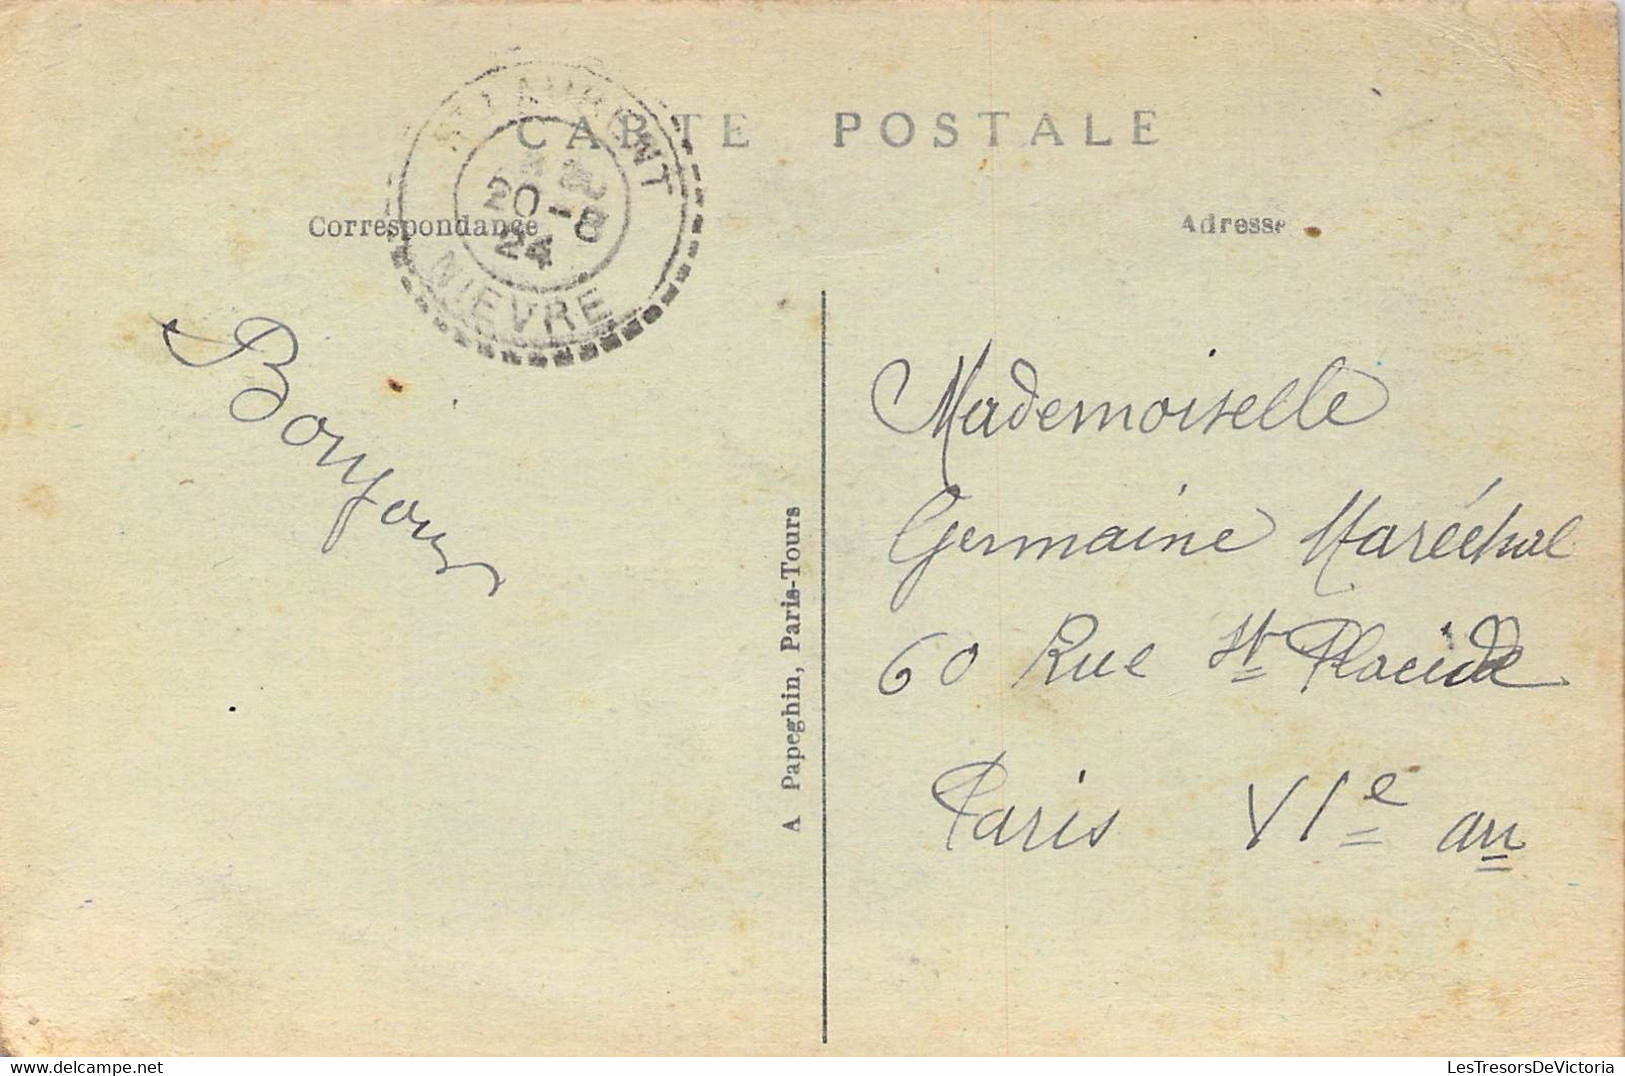 CARTE POSTALE
ST LAURENT
20-8
24
NIEVRE
Correspondance
Adresse
Bonjour
A Papeghin, Paris-Tours
Mademoiselle
Germaine Maréchal
60 Rue St Placide
Paris VIe
LesTresorsDeVictoria